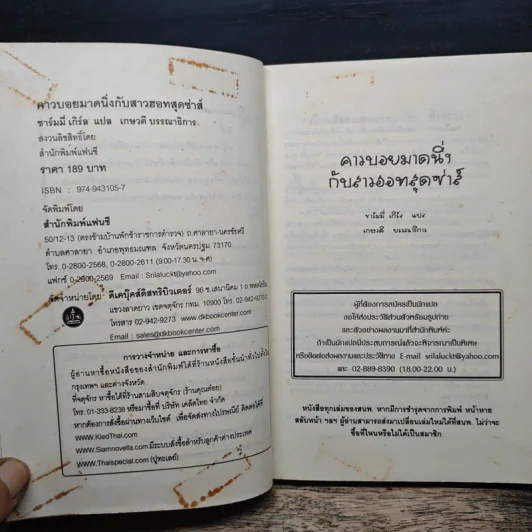 คาวบอยมาดนิ่งกับสาวฮอทสุดซ่าส์
ชาร์มมี่ เกิร์ล แปล เกษวดี บรรณาธิการ
สงวนลิขสิทธิ์โดย
สำนักพิมพ์แฟนซี
ราคา 189 บาท
ISBN : 974-943105-7
จัดพิมพ์โดย
สำนักพิมพ์แฟนซี
50/12-13 (ตรงข้ามบ้านพักข้าราชการตำรวจ) ถ.ศาลายา-นครชัยศรี
ตำบลศาลายา อำเภอพุทธมณฑล จังหวัดนครปฐม 73170
โทร. 0-2800-2568, 0-2800-2611 (9.00-17.30 น.จ-ศ)
แฟกซ์ 0-2800-2569 Email : Srilaluckt@yahoo.com
จัดจำหน่ายโดย ดีเคบุ๊คส์ดิสทริบิวเตอร์ 96 ซ.เสนานิคม 1 ถ.พหลโยธิน
แขวงลาดยาว เขตจตุจักร กทม. 10900 โทร. 02-942-9270-2
โทรสาร 02-942-9273 www.dkbookcenter.com
Email : sales@dkbookcenter.com
การวางจำหน่าย และการหาซื้อ
ผู้อ่านหาซื้อหนังสือของสำนักพิมพ์ได้ที่ร้านหนังสือชั้นนำทั่วไปทั้งใน
กรุงเทพฯ และต่างจังหวัด
ที่จตุจักร หาซื้อได้ที่ร้านสามสิบจตุจักร (ร้านคุณต้อย)
โทร. 01-333-8238 หรือมาซื้อที่ บริษัท เคล็ดไทย จำกัด
หากต้องการสั่งซื้อผ่านทางเว็บไซต์ เพื่อจัดส่งทางไปรษณีย์ ติดต่อได้ที่
www.KledThai.com
www.Siamnovella.com มีระบบสั่งซื้อสำหรับลูกค้าต่างประเทศ
www.Thaispecial.com (ปูทะเลย์)
คาวบอยมาดนิ่ง
กับสาวฮอทสุดซ่าส์
ชาร์มมี่ เกิร์ล แปล
เกษวดี บรรณาธิการ
ผู้ที่ต้องการสมัครเป็นนักแปล
ขอให้ส่งประวัติส่วนตัวพร้อมรูปถ่าย
และตัวอย่างผลงานมาที่สำนักพิมพ์ค่ะ
ถ้าเป็นนักแปลมีประสบการณ์แล้วจะพิจารณาเป็นพิเศษ
หรือติดต่อส่งผลงานและประวัติทาง E-mail srilaluckt@yahoo.com
และ 02-889-8390 (18.00-22.00 น.)
หนังสือทุกเล่มของสนพ. หากมีการชำรุดจากการพิมพ์ หน้าหาย
สลับหน้า ฯลฯ ผู้อ่านสามารถส่งมาเปลี่ยนเล่มใหม่ได้ที่สนพ. ไม่ว่าจะ
ซื้อที่ไหนหรือไม่ได้เป็นสมาชิก